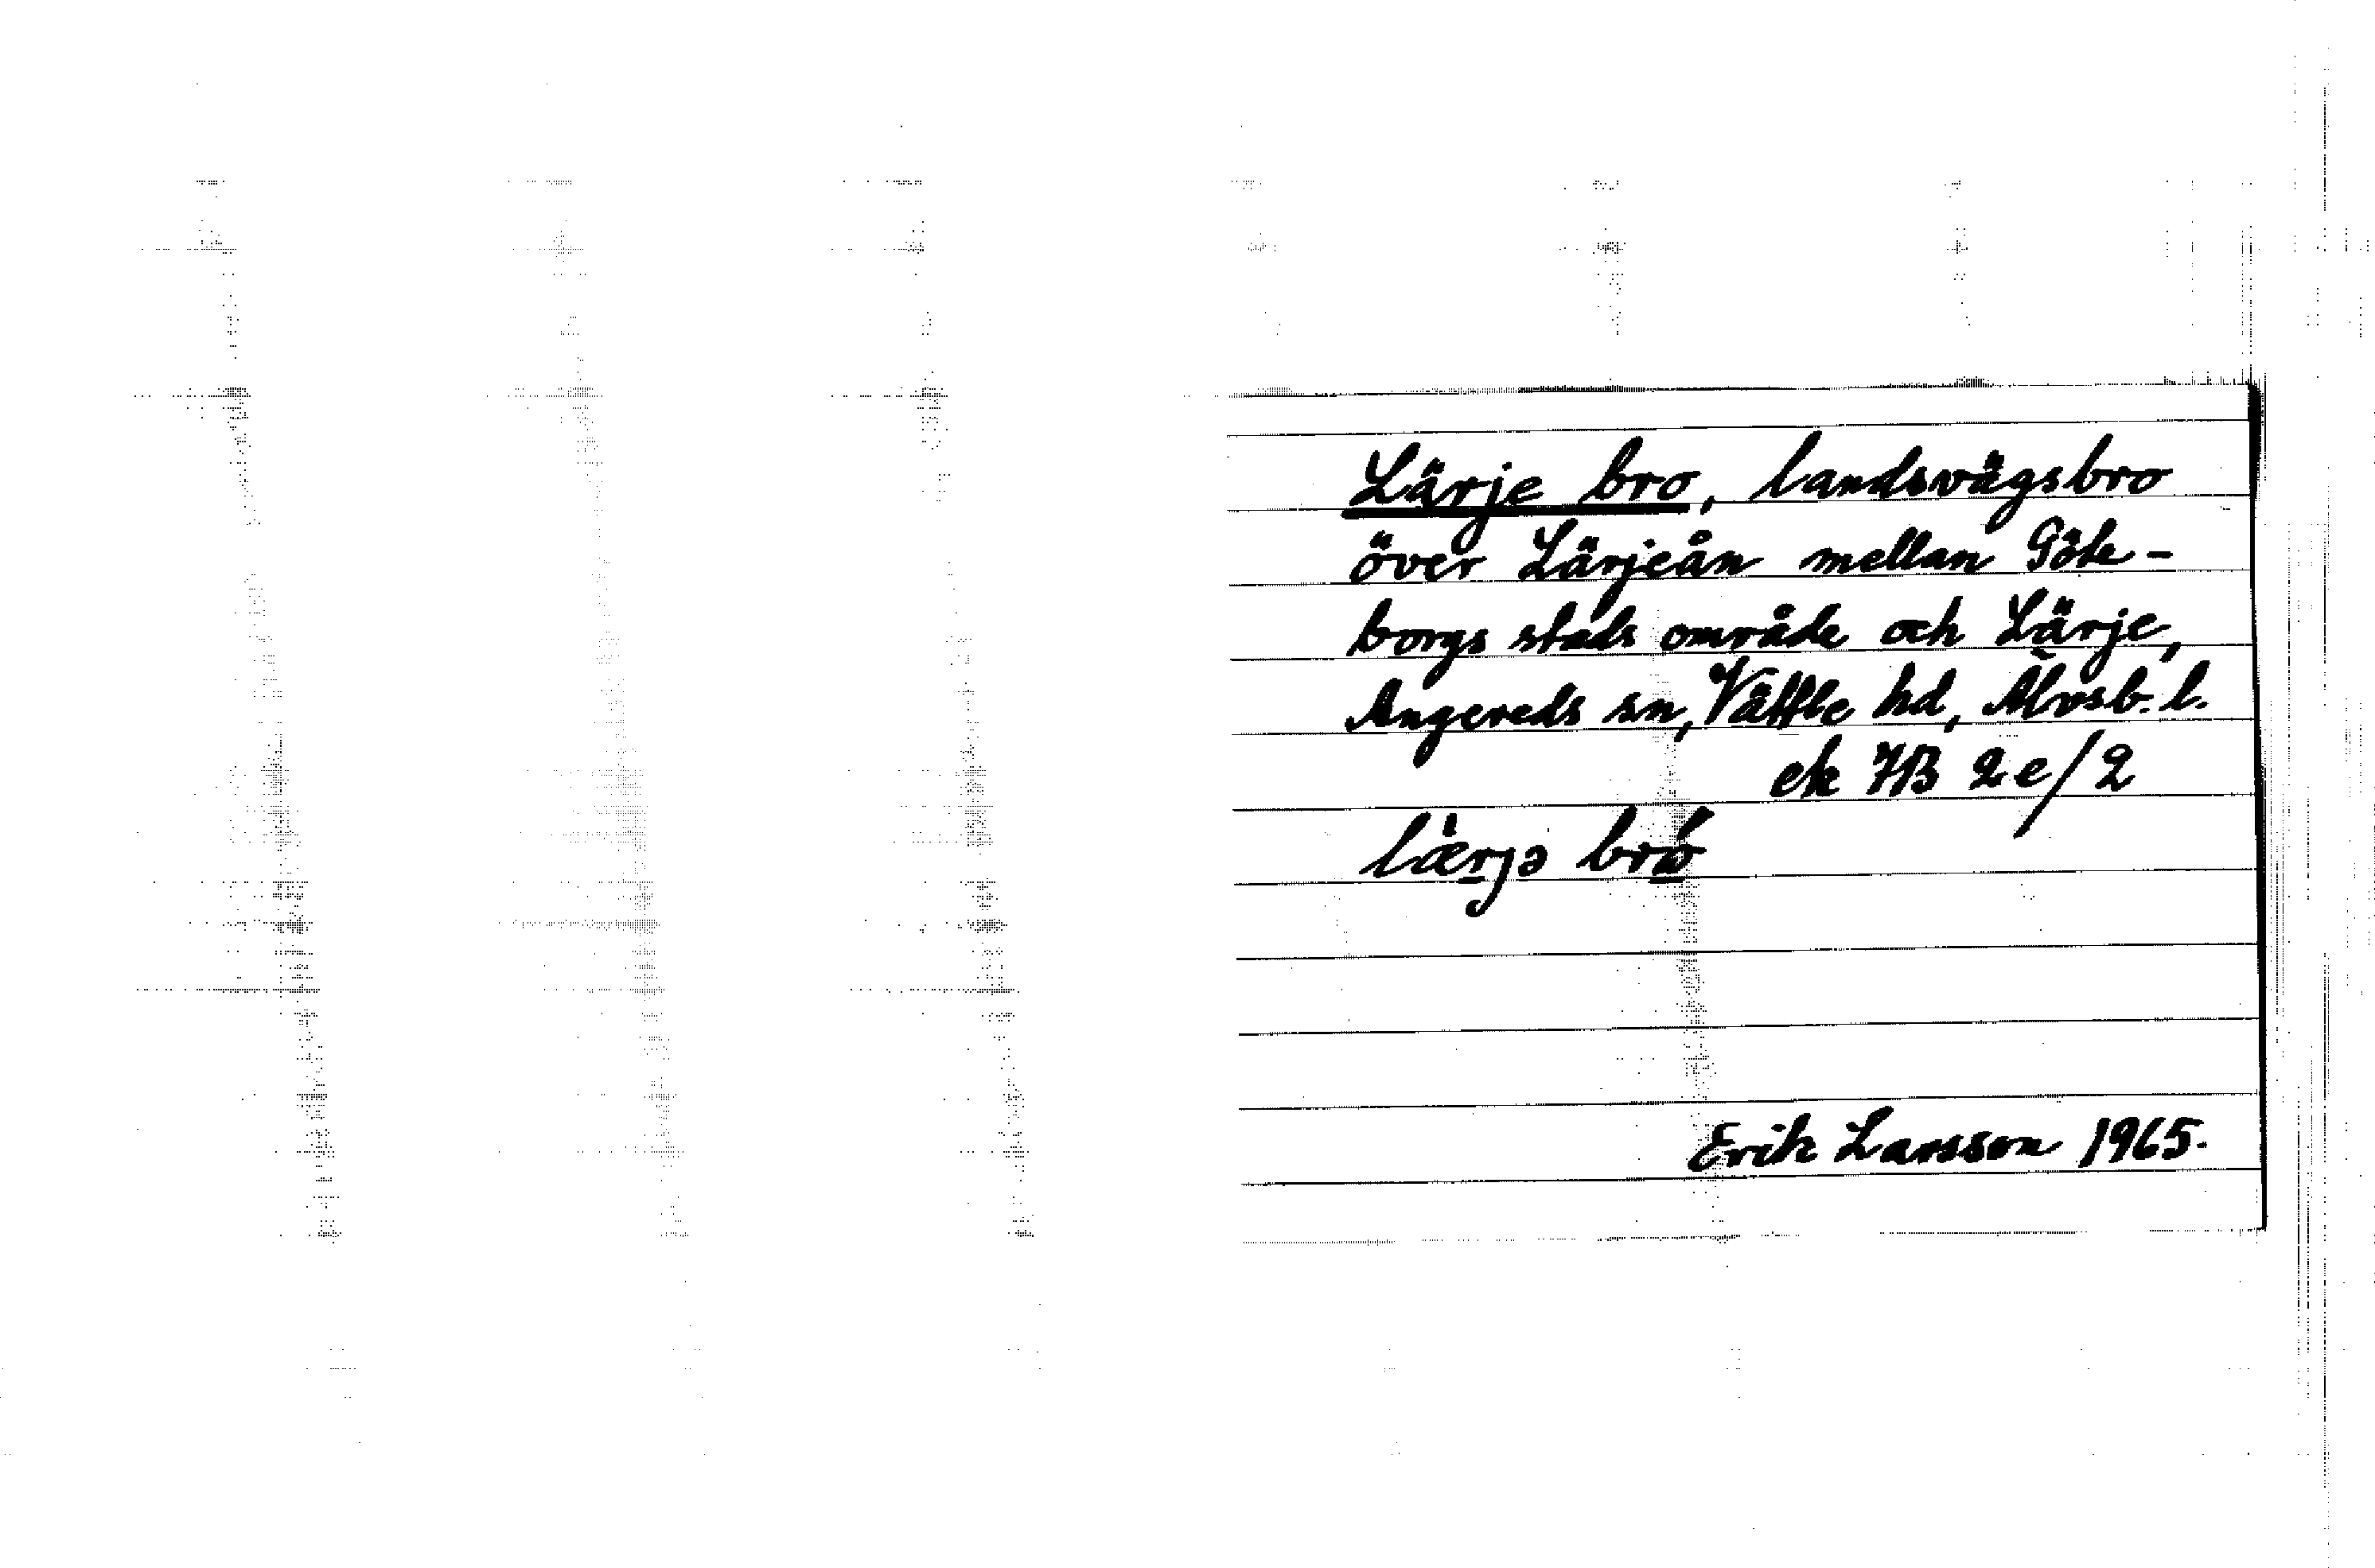 Lärje bro, landsvägsbro
över Lärjeån mellan Göte-
borgs stads område och Lärje,
Angereds sn, Vättle hd, Älvsb. l.
ek 7B 2e/2
læ̀rjə brò
Erik Larsson 1965.